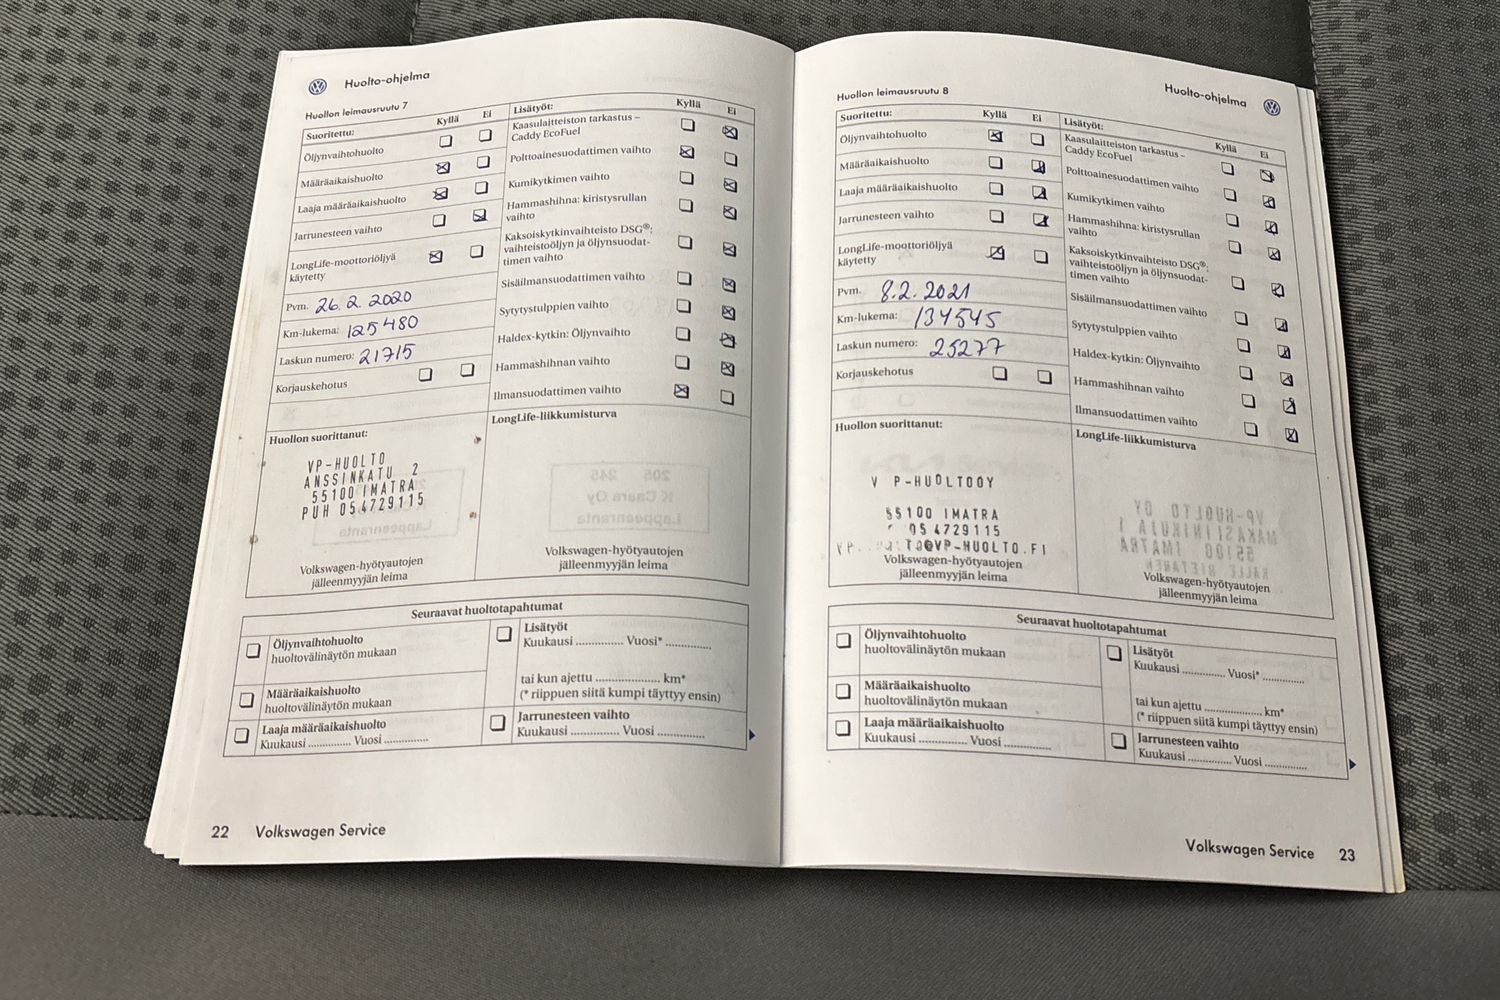 Huolto-ohjelma
Huollon leimausruutu 7
Suoritettu: Kyllä Ei
Öljynvaihtohuolto
Määräaikaishuolto
Laaja määräaikaishuolto
Jarrunesteen vaihto
LongLife-moottoriöljyä
käytetty
Pvm. 26.2.2020
Km-lukema: 125480
Laskun numero: 21715
Korjauskehotus
Lisätyöt: Kyllä Ei
Kaasulaitteiston tarkastus –
Caddy EcoFuel
Polttoainesuodattimen vaihto
Kumikytkimen vaihto
Hammashihna: kiristysrullan
vaihto
Kaksoiskytkinvaihteisto DSG®:
vaihteistoöljyn ja öljynsuodat-
timen vaihto
Sisäilmansuodattimen vaihto
Sytytystulppien vaihto
Haldex-kytkin: Öljynvaihto
Hammashihnan vaihto
Ilmansuodattimen vaihto
Huollon suorittanut:
VP-HUOLTO
ANSSINKATU 2
55100 IMATRA
PUH 054729115
Volkswagen-hyötyautojen
jälleenmyyjän leima
LongLife-liikkumisturva
Volkswagen-hyötyautojen
jälleenmyyjän leima
Seuraavat huoltotapahtumat
Öljynvaihtohuolto
huoltovälinäytön mukaan
Määräaikaishuolto
huoltovälinäytön mukaan
Laaja määräaikaishuolto
Kuukausi .............. Vuosi ..............
Lisätyöt
Kuukausi .............. Vuosi* ..............
tai kun ajettu .................... km*
(* riippuen siitä kumpi täyttyy ensin)
Jarrunesteen vaihto
Kuukausi .............. Vuosi ..............
22 Volkswagen Service
Huolto-ohjelma
Huollon leimausruutu 8
Suoritettu: Kyllä Ei
Öljynvaihtohuolto
Määräaikaishuolto
Laaja määräaikaishuolto
Jarrunesteen vaihto
LongLife-moottoriöljyä
käytetty
Pvm. 8.2.2021
Km-lukema: 134545
Laskun numero: 25277
Korjauskehotus
Lisätyöt: Kyllä Ei
Kaasulaitteiston tarkastus –
Caddy EcoFuel
Polttoainesuodattimen vaihto
Kumikytkimen vaihto
Hammashihna: kiristysrullan
vaihto
Kaksoiskytkinvaihteisto DSG®:
vaihteistoöljyn ja öljynsuodat-
timen vaihto
Sisäilmansuodattimen vaihto
Sytytystulppien vaihto
Haldex-kytkin: Öljynvaihto
Hammashihnan vaihto
Ilmansuodattimen vaihto
Huollon suorittanut:
V P-HUOLTOOY
55100 IMATRA
05 4729115
TO@VP-HUOLTO.FI
Volkswagen-hyötyautojen
jälleenmyyjän leima
LongLife-liikkumisturva
Volkswagen-hyötyautojen
jälleenmyyjän leima
Seuraavat huoltotapahtumat
Öljynvaihtohuolto
huoltovälinäytön mukaan
Määräaikaishuolto
huoltovälinäytön mukaan
Laaja määräaikaishuolto
Kuukausi .............. Vuosi ..............
Lisätyöt
Kuukausi .............. Vuosi* ..............
tai kun ajettu .................... km*
(* riippuen siitä kumpi täyttyy ensin)
Jarrunesteen vaihto
Kuukausi .............. Vuosi ..............
Volkswagen Service 23